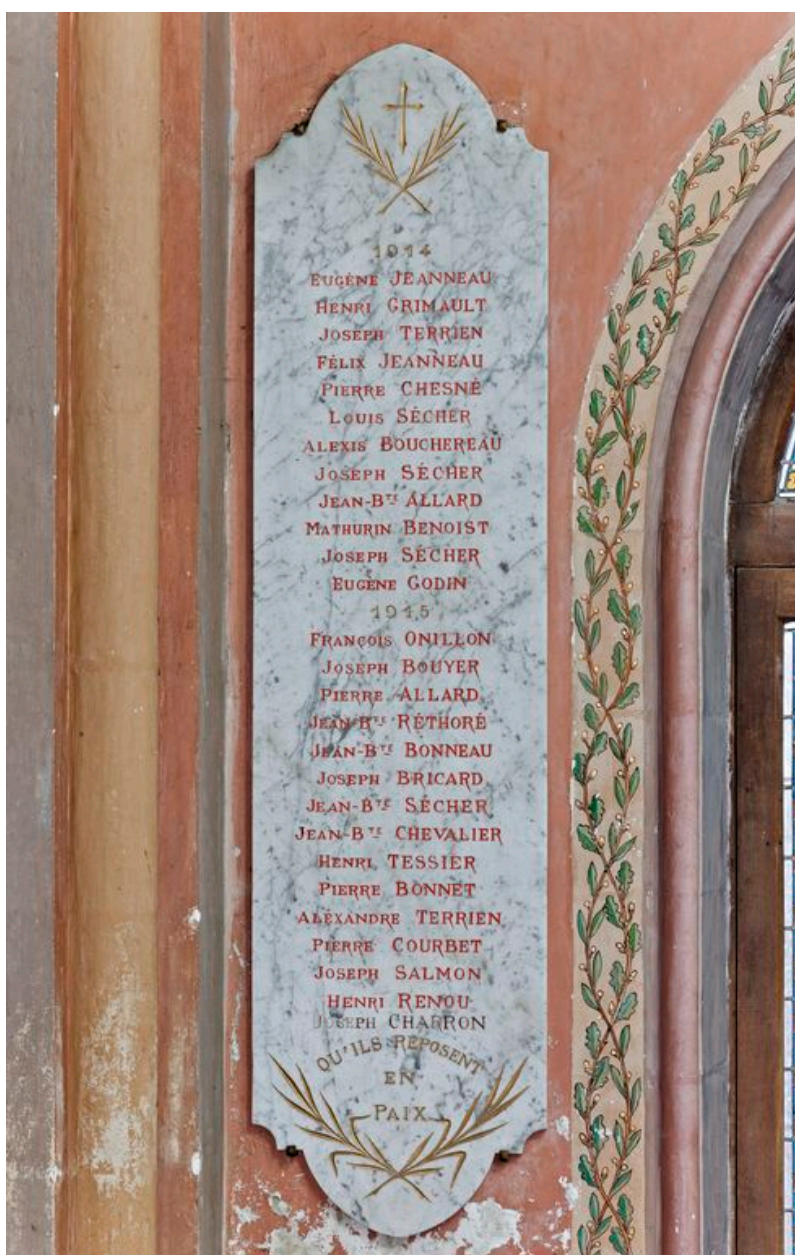 1914
EUGÈNE JEANNEAU
HENRI GRIMAULT
JOSEPH TERRIEN
FÉLIX JEANNEAU
PIERRE CHESNÉ
LOUIS SÉCHER
ALEXIS BOUCHEREAU
JOSEPH SÉCHER
JEAN-BTE ALLARD
MATHURIN BENOIST
JOSEPH SÉCHER
EUGÈNE GODIN
1915
FRANÇOIS ONILLON
JOSEPH BOUYER
PIERRE ALLARD
JEAN-BTE RÉTHORÉ
JEAN-BTE BONNEAU
JOSEPH BRICARD
JEAN-BTE SÉCHER
JEAN-BTE CHEVALIER
HENRI TESSIER
PIERRE BONNET
ALÉXANDRE TERRIEN
PIERRE COURBET
JOSEPH SALMON
HENRI RENOU
JOSEPH CHARRON
QU'ILS REPOSENT
EN
PAIX